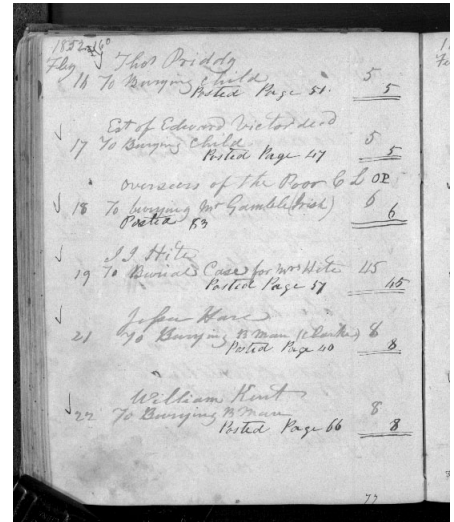 1852
Feby Thos Priddy
16 To Burying Child 5
Posted Page 51. 5
Est of Edward Victor decd
17 To Burying Child 5
Posted Page 47 5
overseers of the Poor C L OP
18 To burying Mr Gamble (Irish) 6
Posted 83 6
I I Hite
19 To Burial Case for Mrs Hite 45
Posted Page 57 45
Jesse Hare
21 To Burying B Man 8
Posted Page 40 8
William Kent
22 To Burying B Man 8
Posted Page 66 8
77